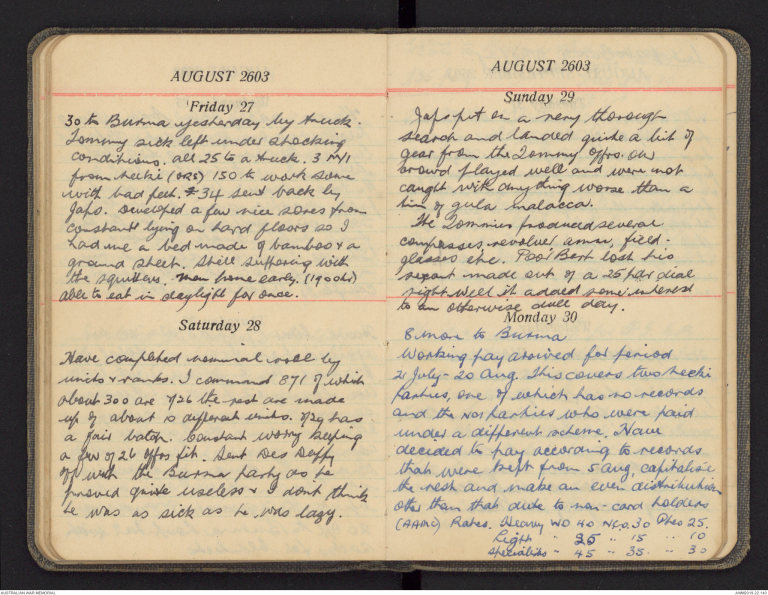 AUGUST 2603
Friday 27
30 to Burma yesterday by truck.
Tommy sick left under shocking
conditions. all 25 to a truck. 3 NYI
from heckie (ORS) 150 to work some
with bad feet. 34 sent back by
Japs. Developed a few nice sores from
constant lying on hard floors so I
had me a bed made of bamboo & a
ground sheet. Still suffering with
the squitters. Men home early. (1900hr)
able to eat in daylight for once.
Saturday 28
Have completed nominal roll by
units & ranks. I command 871 of which
about 300 are 2/26 the rest are made
up of about 10 different units. 2/29 has
a fair batch. Constant worry keeping
a few of 26 offrs fit. Sent Des Duffy
off with the Burma party as he
proved quite useless & I dont think
he was as sick as he was lazy.
AUGUST 2603
Sunday 29
Japs put on a very thorough
search and landed quite a bit of
gear from the Tommy offrs. Our
crowd played well and were not
caught with anything worse than a
tin of gula malacca.
The Tommies produced several
compasses, revolver ammo, field-
glasses etc. Poor Bert lost his
sexant made out of a 25 pdr dial
sight. Well it added some interest
to an otherwise dull day.
Monday 30
8 more to Burma
Working pay arrived for period
21 July - 20 Aug. This covers two hecki
parties, one of which has no records
and the No1 parties who were paid
under a different scheme. Have
decided to pay according to records
that were kept from 5 Aug, capitalise
the rest and make an even distribution
other than that due to non-card holders
(AAMC) Rates. Heavy WO 40 NCO. 30 Ptes 25.
Light " 25 " 15 " 10
Specialists " 45 " 35. " 30
AUSTRALIAN WAR MEMORIAL